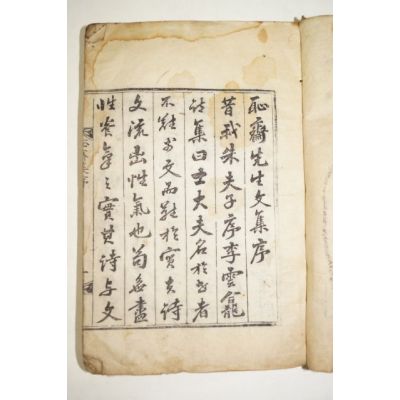 恥齋先生文集序
昔我朱夫子序李雲龕
詩集曰士大夫名於世者
不難於文而難於實夫詩
文流出性氣也苟無盡
性養氣之實其詩与文